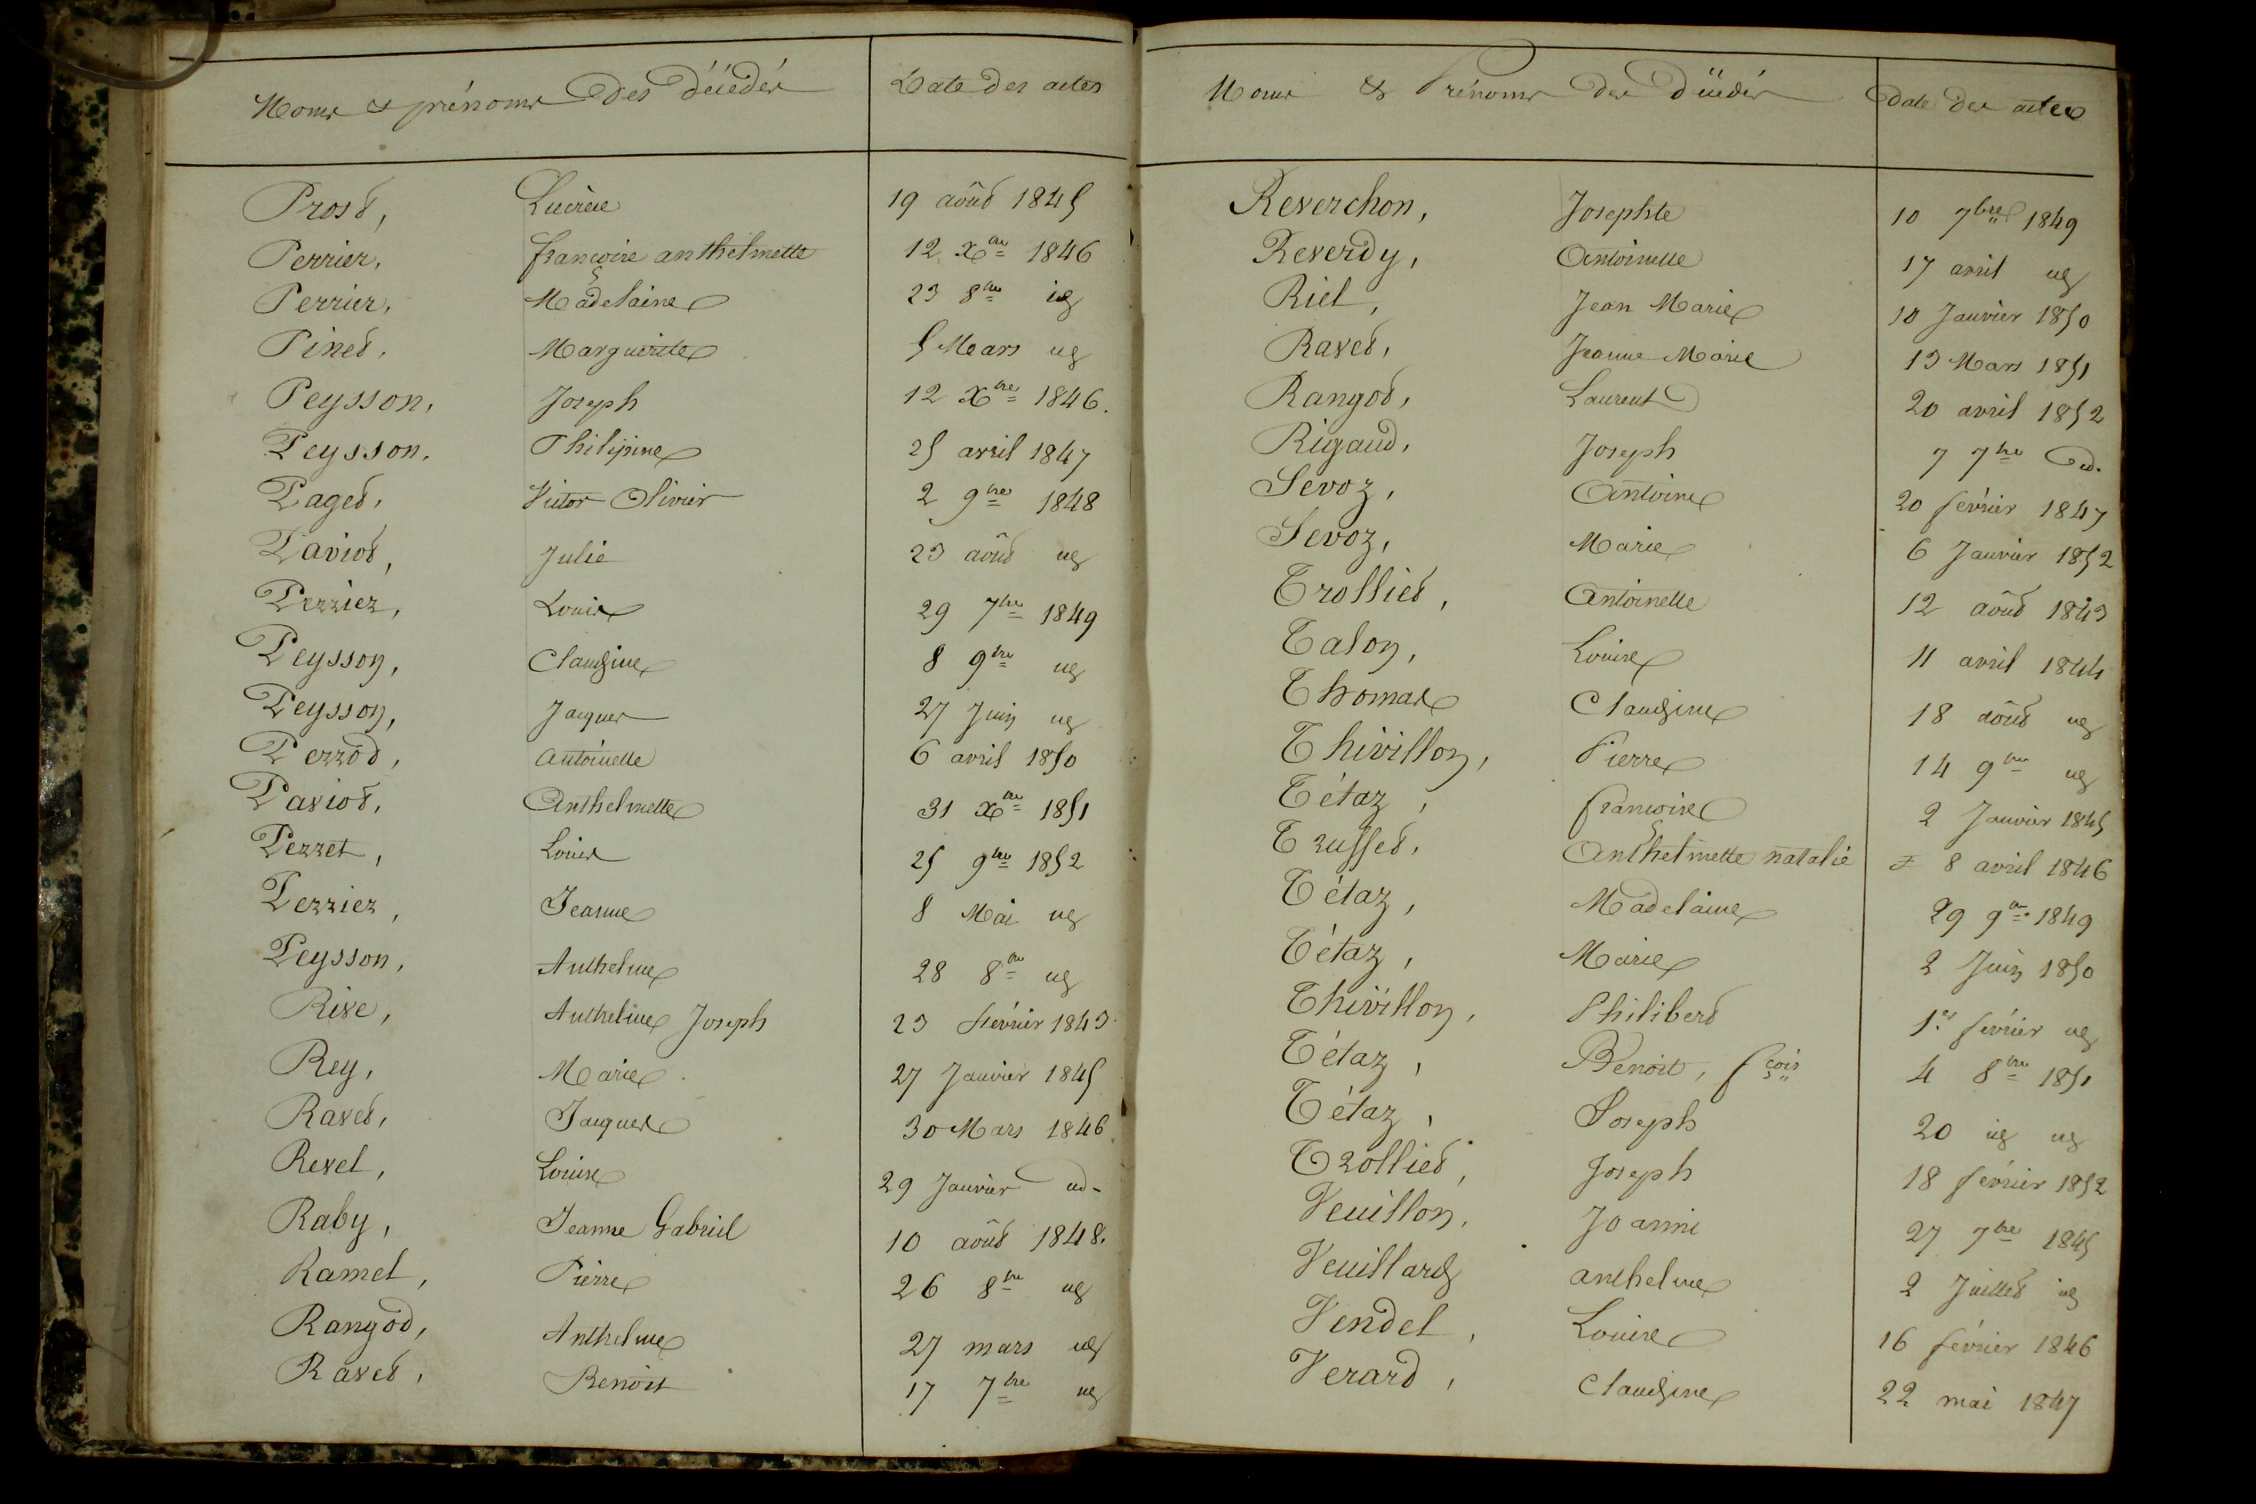 Noms & prénoms des décédés Date des actes
Prost, Lucrèce 19 août 1845
Perrier, françoise anthelmette 12 Xbre 1846
Perrier, Madelaine 23 8bre id
Pinet, Marguerite 5 Mars id
Peysson, Joseph 12 Xbre 1846.
Peysson, Philipine 25 avril 1847
Paget, Victor Olivier 2 9bre 1848
Paviot, Julie 23 août id
Perrier, Louis 29 7bre 1849
Peysson, Claudine 8 9bre id
Peysson, Jacques 27 Juin id
Perrod, antoinette 6 avril 1850
Paviot, Anthelmette 31 Xbre 1851
Perret, Louis 25 9bre 1852
Perrier, Jeanne 8 Mai id
Peysson, Anthelme 28 8bre id
Rive, Anthelme Joseph 23 février 1843
Rey, Marie 27 Janvier 1845
Ravet, Jacques 30 Mars 1846
Revel, Louise 29 Janvier id
Raby, Jeanne Gabriel 10 août 1848.
Ramel, Pierre 26 8bre id
Rangod, Anthelme 27 mars id
Ravet, Benoit 17 7bre id
Noms & Prénoms des Décédés Date des actes
Reverchon, Josephte 10 7bre 1849
Reverdy, Antoinette 17 avril id
Riel, Jean Marie 10 Janvier 1850
Ravet, Jeanne Marie 13 Mars 1851
Rangod, Laurent 20 avril 1852
Rigaud, Joseph 7 7bre id.
Sevoz, Antoine 20 février 1847
Sevoz, Marie 6 Janvier 1852
Trolliet, Antoinette 12 août 1843
Talon, Louise 11 avril 1844
Thomas Claudine 18 août id
Thivillon, Pierre 14 9bre id
Tétaz, françoise 2 Janvier 1845
Trusset, Anthelmette natalie 8 avril 1846
Tétaz, Madelaine 29 9bre 1849
Tétaz, Marie 2 Juin 1850
Thivillon, Philibert 1er février id
Tétaz, Benoit, fçois 4 8bre 1851
Tétaz, Joseph 20 id id
Trolliet, Joseph 18 février 1852
Veuillon, Joanni 27 7bre 1845
Veuillard anthelme 2 Juillet id
Vendel, Louise 16 février 1846
Verard, Claudine 22 mai 1847